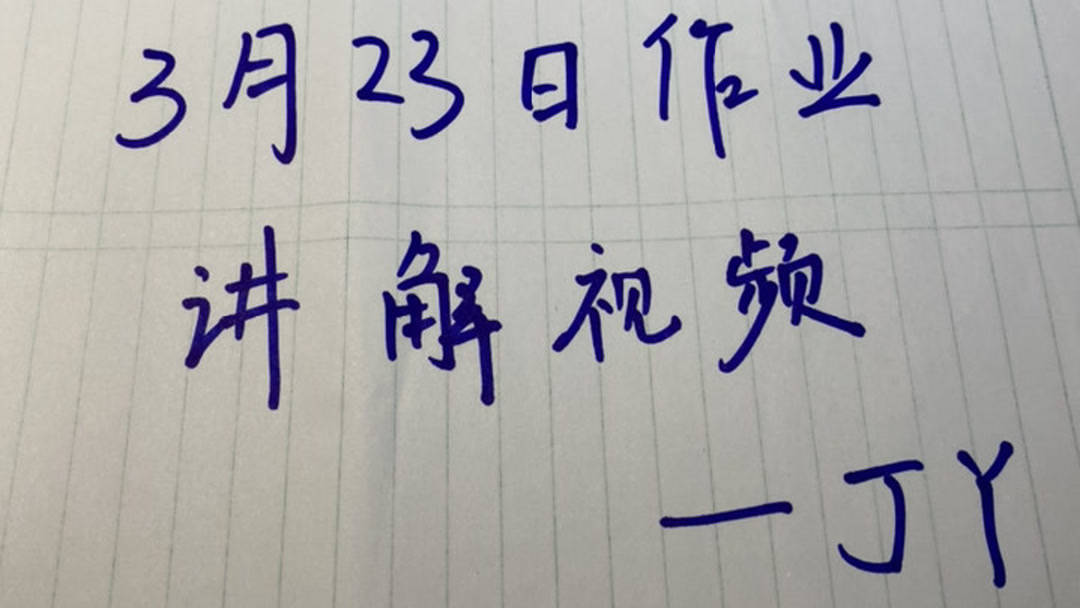 3月23日作业
讲解视频
—JY